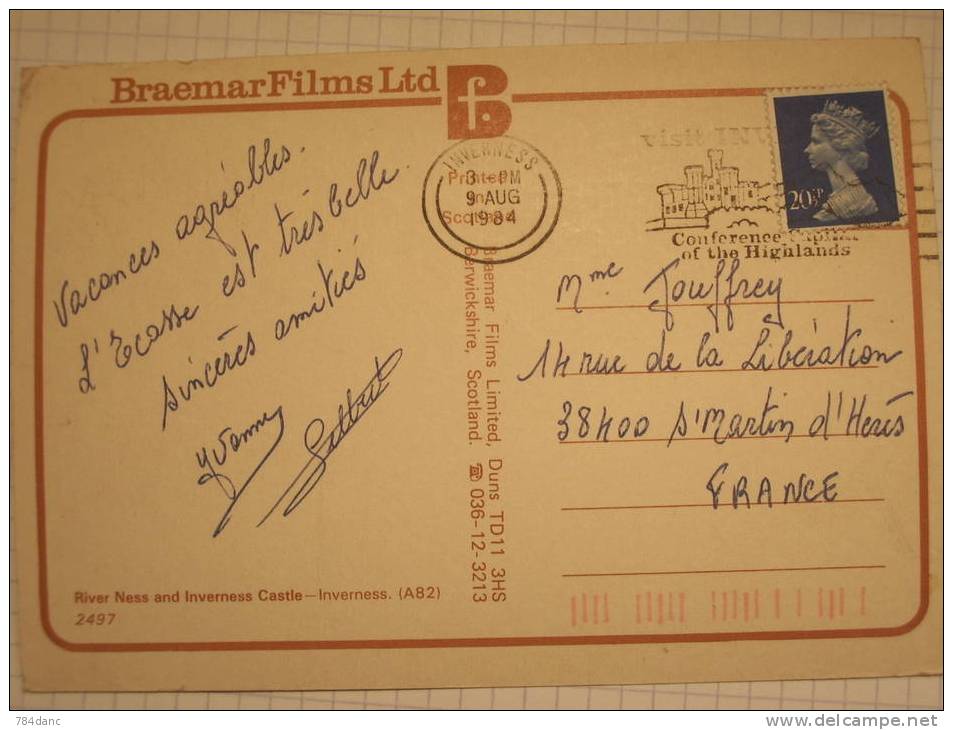 Braemar Films Ltd
fB
Vacances agréables.
L'Ecosse est très belle.
Sincères amitiés
Yvonne
Gilbert
River Ness and Inverness Castle – Inverness. (A82)
2497
Printed
in
Scotland
INVERNESS
3 - PM
9 AUG
1984
Braemar Films Limited, Duns TD11 3HS
Berwickshire, Scotland. ☎ 036-12-3213
visit INV
Conference Capital
of the Highlands
20½P
Mme Jouffrey
14 rue de la Libération
38400 St Martin d'Hères
FRANCE
784danc
www.delcampe.net